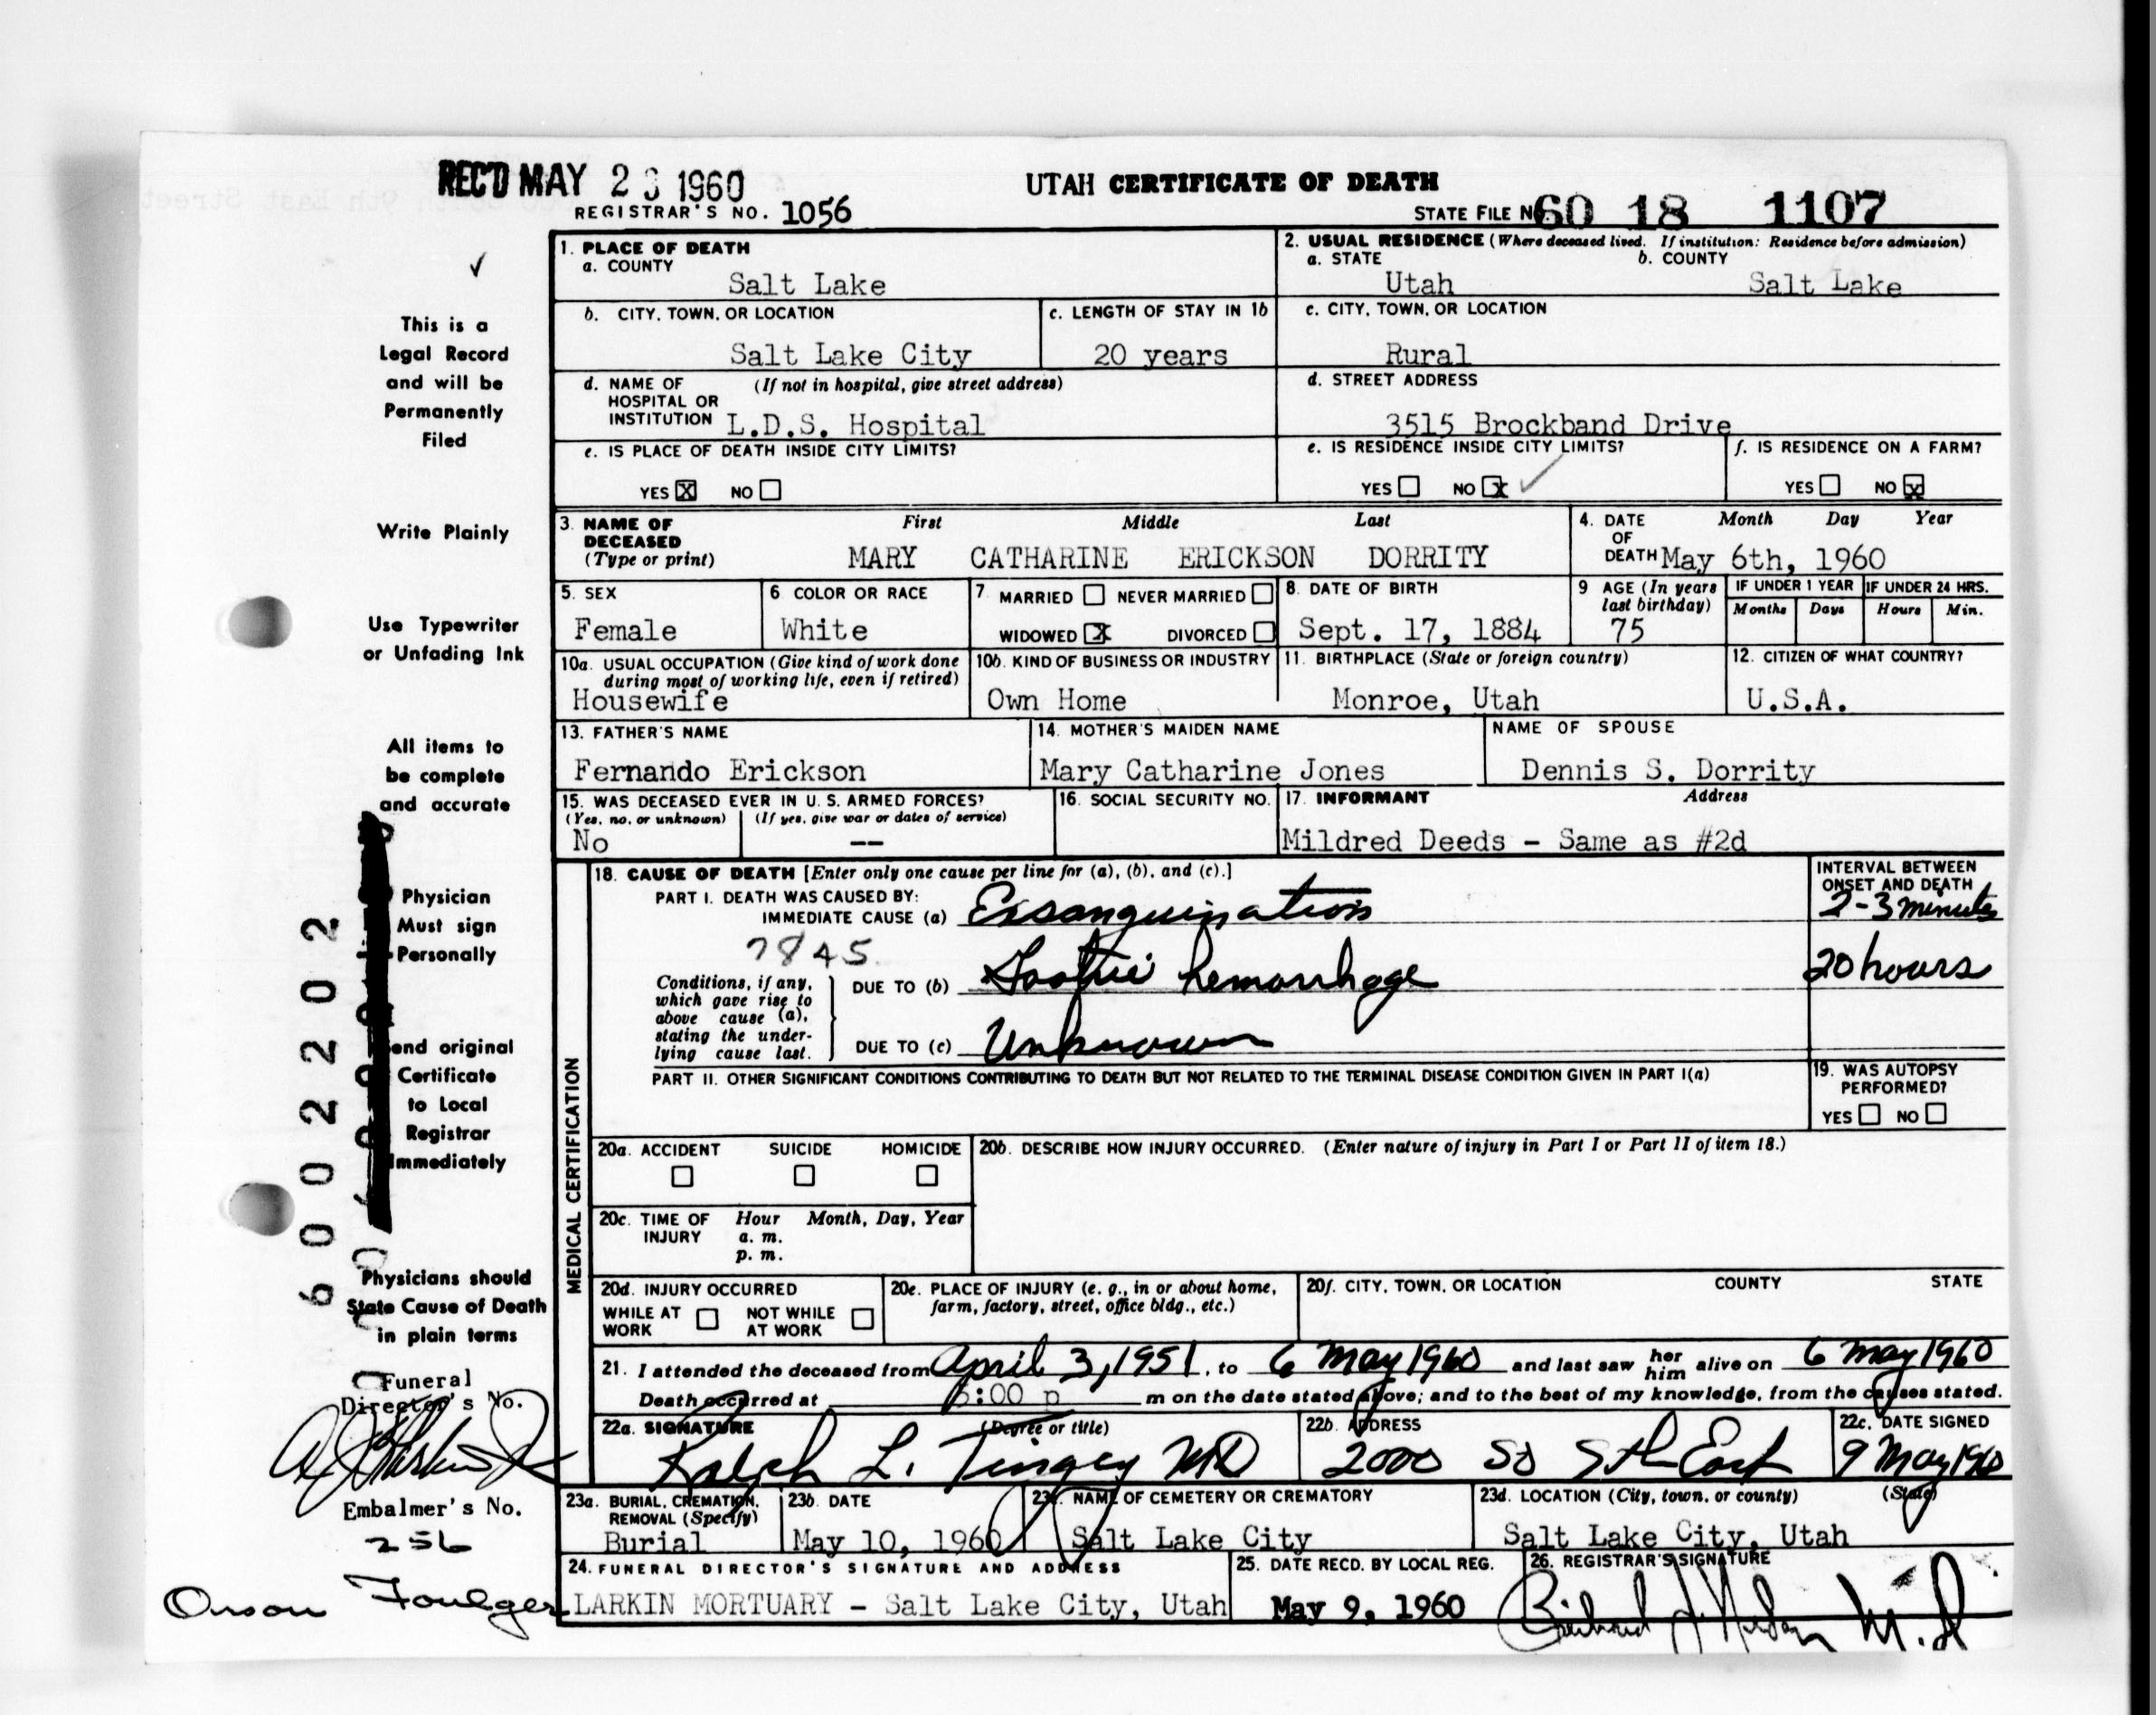 REC'D MAY 23 1960
UTAH CERTIFICATE OF DEATH
REGISTRAR'S NO. 1056
STATE FILE NO. 60 18 1107
1. PLACE OF DEATH
a. COUNTY
Salt Lake
2. USUAL RESIDENCE (Where deceased lived. If institution: Residence before admission)
a. STATE b. COUNTY
Utah Salt Lake
b. CITY, TOWN, OR LOCATION
Salt Lake City
c. LENGTH OF STAY IN 1b
20 years
c. CITY, TOWN, OR LOCATION
Rural
d. NAME OF HOSPITAL OR INSTITUTION (If not in hospital, give street address)
L.D.S. Hospital
d. STREET ADDRESS
3515 Brockband Drive
e. IS PLACE OF DEATH INSIDE CITY LIMITS?
YES X NO
e. IS RESIDENCE INSIDE CITY LIMITS?
YES NO X
f. IS RESIDENCE ON A FARM?
YES NO X
3. NAME OF DECEASED (Type or print)
First Middle Last
MARY CATHARINE ERICKSON DORRITY
4. DATE OF DEATH Month Day Year
May 6th, 1960
5. SEX
Female
6 COLOR OR RACE
White
7. MARRIED NEVER MARRIED
WIDOWED X DIVORCED
8. DATE OF BIRTH
Sept. 17, 1884
9 AGE (In years last birthday)
75
IF UNDER 1 YEAR
Months Days
IF UNDER 24 HRS.
Hours Min.
10a. USUAL OCCUPATION (Give kind of work done during most of working life, even if retired)
Housewife
10b. KIND OF BUSINESS OR INDUSTRY
Own Home
11. BIRTHPLACE (State or foreign country)
Monroe, Utah
12. CITIZEN OF WHAT COUNTRY?
U.S.A.
13. FATHER'S NAME
Fernando Erickson
14. MOTHER'S MAIDEN NAME
Mary Catharine Jones
NAME OF SPOUSE
Dennis S. Dorrity
15. WAS DECEASED EVER IN U. S. ARMED FORCES?
(Yes, no, or unknown) (If yes, give war or dates of service)
No --
16. SOCIAL SECURITY NO.
17. INFORMANT Address
Mildred Deeds - Same as #2d
18. CAUSE OF DEATH [Enter only one cause per line for (a), (b), and (c).]
PART I. DEATH WAS CAUSED BY:
IMMEDIATE CAUSE (a) Exsanguination
7845
Conditions, if any, which gave rise to above cause (a), stating the underlying cause last.
DUE TO (b) hemorrhage
DUE TO (c) Unknown
INTERVAL BETWEEN ONSET AND DEATH
2-3 minutes
20 hours
PART II. OTHER SIGNIFICANT CONDITIONS CONTRIBUTING TO DEATH BUT NOT RELATED TO THE TERMINAL DISEASE CONDITION GIVEN IN PART I(a)
19. WAS AUTOPSY PERFORMED?
YES NO
MEDICAL CERTIFICATION
20a. ACCIDENT SUICIDE HOMICIDE
20b. DESCRIBE HOW INJURY OCCURRED. (Enter nature of injury in Part I or Part II of item 18.)
20c. TIME OF INJURY Hour Month, Day, Year
a. m.
p. m.
20d. INJURY OCCURRED
WHILE AT WORK NOT WHILE AT WORK
20e. PLACE OF INJURY (e. g., in or about home, farm, factory, street, office bldg., etc.)
20f. CITY, TOWN, OR LOCATION COUNTY STATE
21. I attended the deceased from April 3, 1951, to 6 May 1960 and last saw her him alive on 6 May 1960
Death occurred at :00 p m on the date stated above; and to the best of my knowledge, from the causes stated.
22a. SIGNATURE (Degree or title)
Ralph L. Tingey MD
22b. ADDRESS
2000 So 5th East
22c. DATE SIGNED
9 May 1960
23a. BURIAL, CREMATION, REMOVAL (Specify)
Burial
23b. DATE
May 10, 1960
23c. NAME OF CEMETERY OR CREMATORY
Salt Lake City
23d. LOCATION (City, town, or county) (State)
Salt Lake City, Utah
24. FUNERAL DIRECTOR'S SIGNATURE AND ADDRESS
LARKIN MORTUARY - Salt Lake City, Utah
25. DATE RECD. BY LOCAL REG.
May 9, 1960
26. REGISTRAR'S SIGNATURE
This is a
Legal Record
and will be
Permanently
Filed
Write Plainly
Use Typewriter
or Unfading Ink
All items to
be complete
and accurate
Physician
Must sign
Personally
Send original
Certificate
to Local
Registrar
Immediately
Physicians should
State Cause of Death
in plain terms
6002202
Funeral
Director's No.
Embalmer's No.
256
Orson Foulger